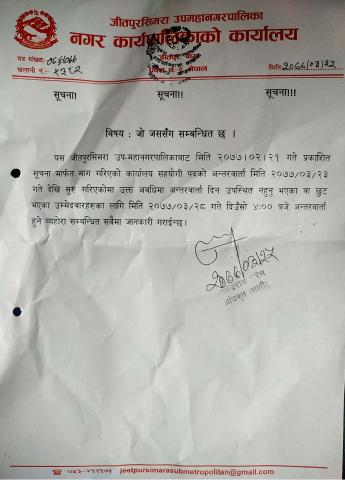 जीतपुरसिमरा उपमहानगरपालिका
नगर कार्यपालिकाको कार्यालय
जीतपुर, बारा
प्रदेश नं. २, नेपाल
पत्र संख्या:
चलानी नं.:-
मिति: २०७७/०३/२५
सूचना! सूचना!! सूचना!!!
विषय : जो जससँग सम्बन्धित छ ।
यस जीतपुरसिमरा उप-महानगरपालिकाबाट मिति २०७७।०२।२१ गते प्रकाशित
सूचना मार्फत माग गरिएको कार्यालय सहयोगी पदको अन्तरवार्ता मिति २०७७/०३/२३
गते देखि सुरु गरिएकोमा उक्त अवधिमा अन्तरवार्ता दिन उपस्थित नहुनु भएका वा छुट
भएका उम्मेदवारहरुका लागि मिति २०७७/०३/२८ गते दिउँसो ४:०० बजे अन्तरवार्ता
हुने व्यहोरा सम्बन्धित सबैमा जानकारी गराईन्छ।
२०७७/०३/२५
अधिकृत (सातौं)
jeetpursimarasubmetropolitan@gmail.com